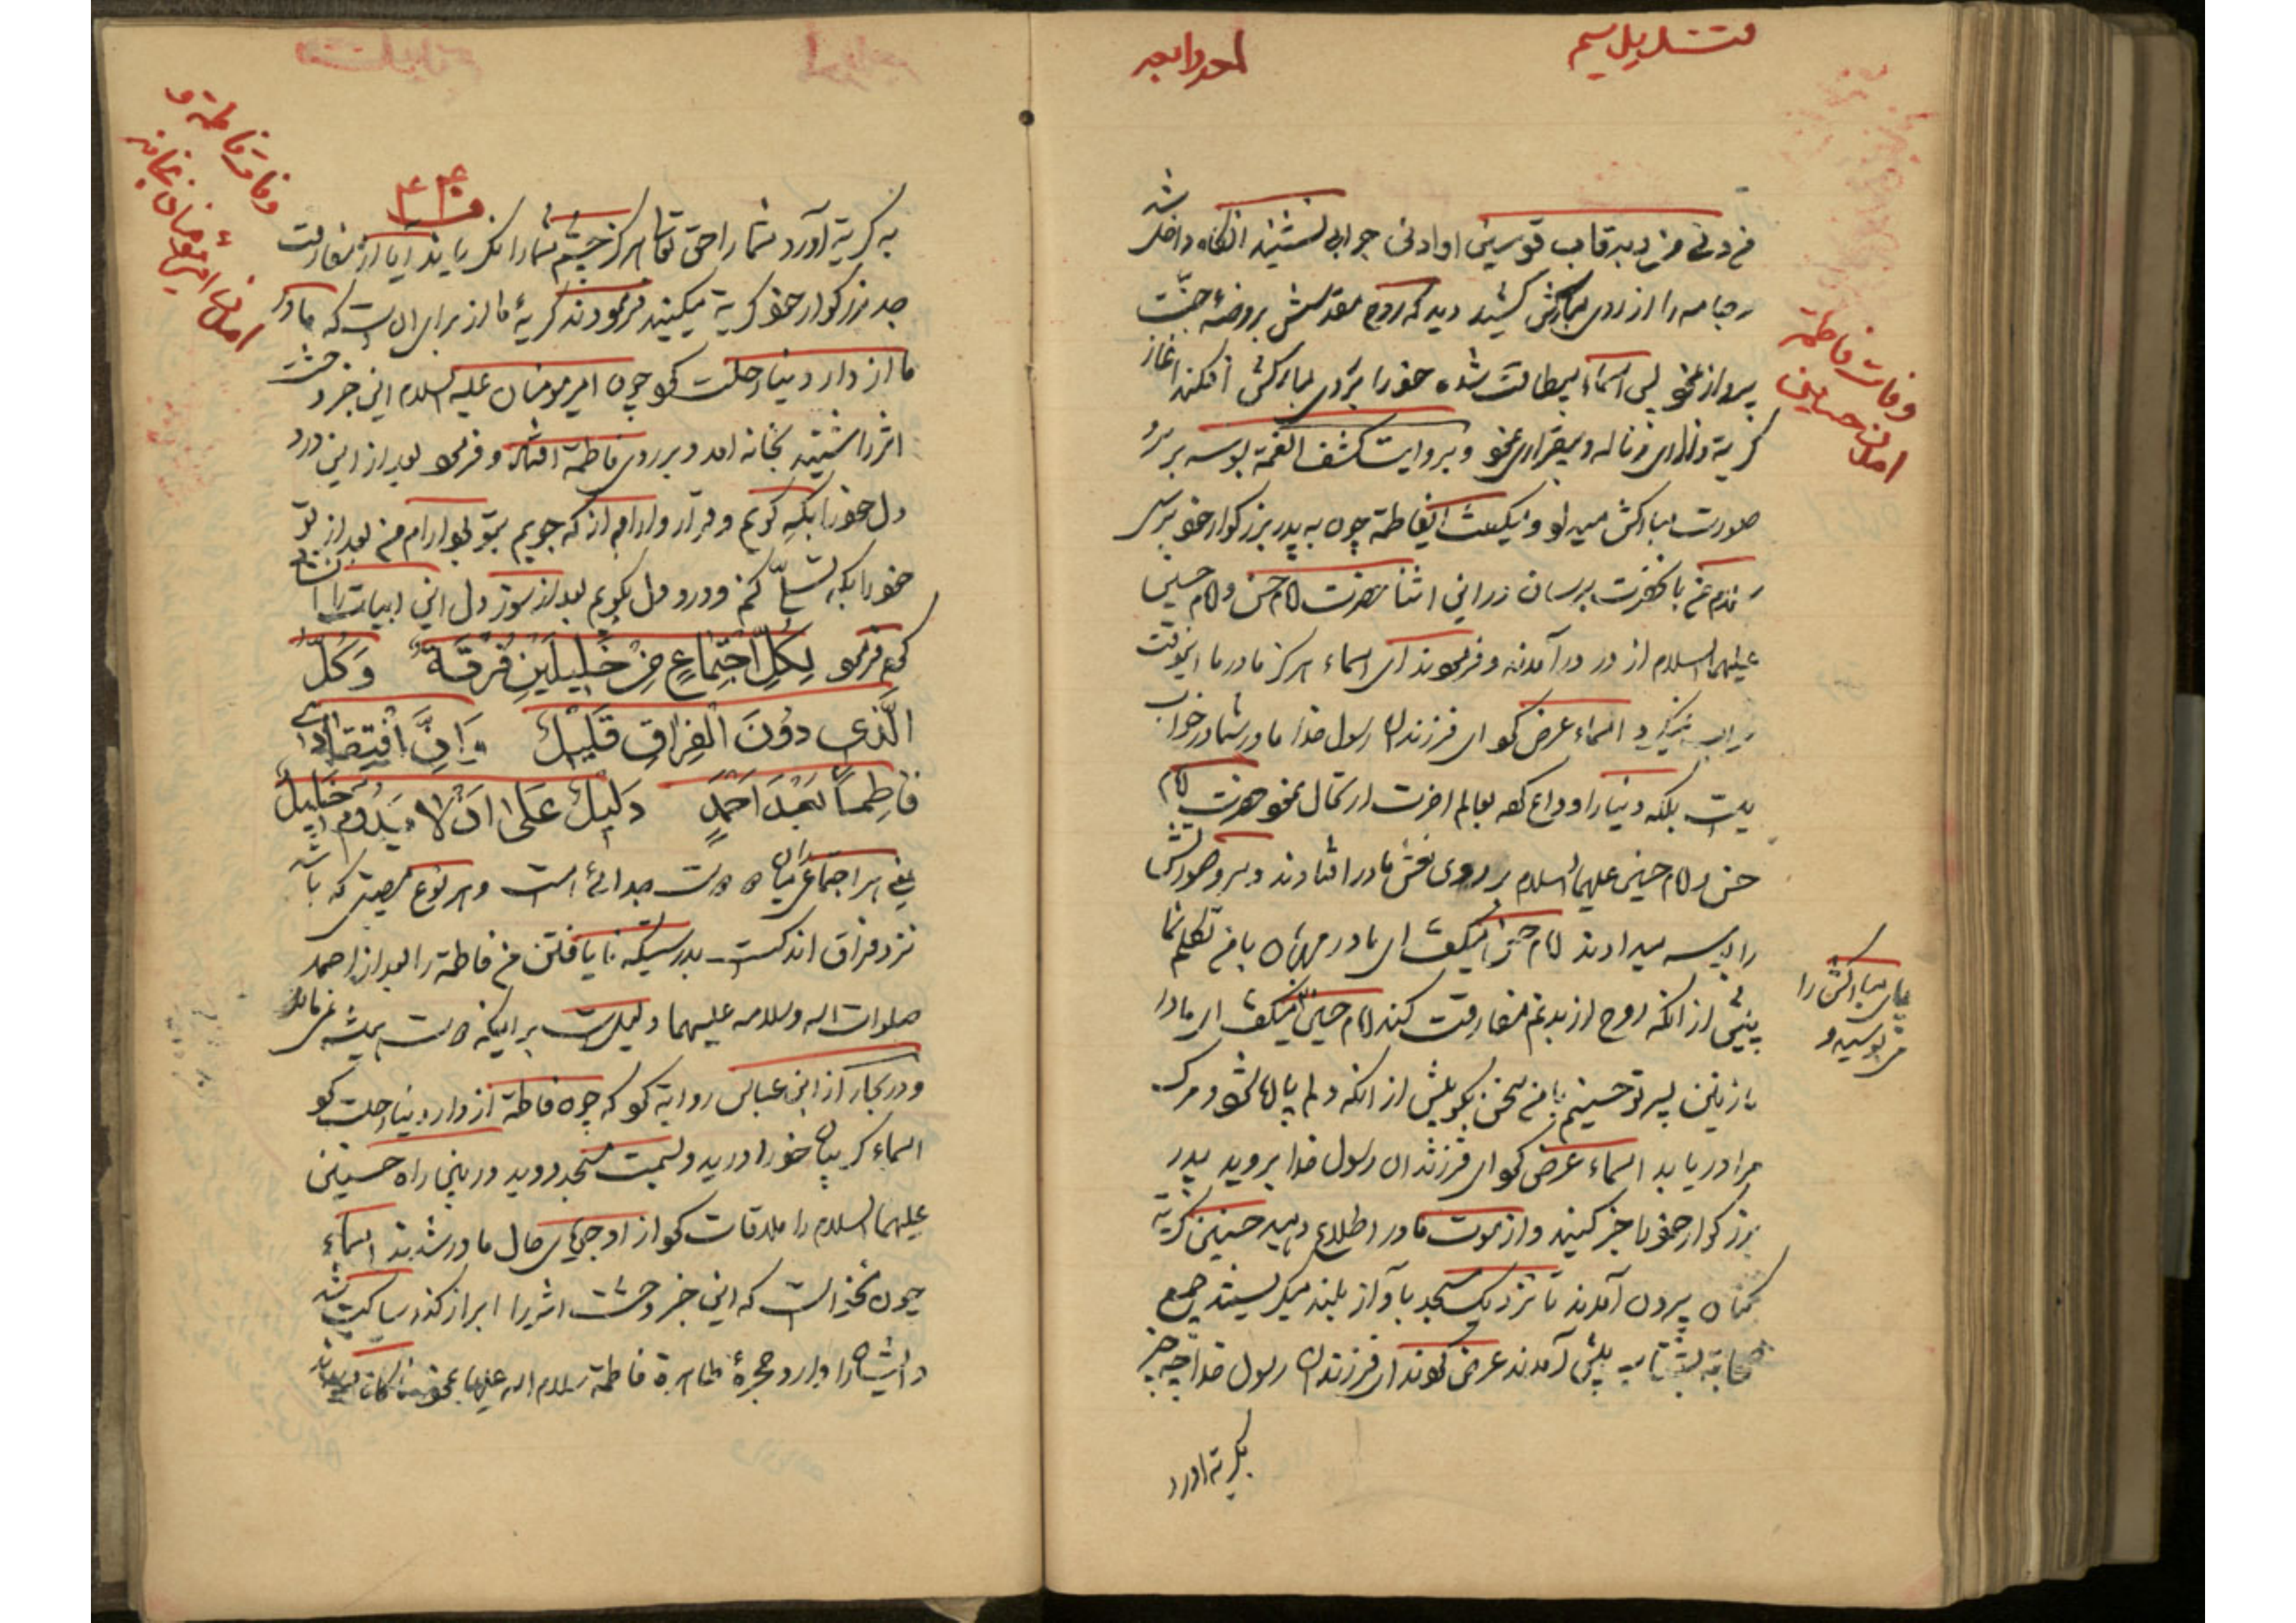 وفات فاطمه
امدن حسنین
من دنی من ربه قاب قوسین او ادنی جوابی نشنید انگاه داخل شد
جامه را از روی مبارکش کشید دید که روح مقدسش بروضهٔ جنّت
پرواز نمود پس اسماء بیطاقت شده خود را بروی مبارکش افکند اغاز
گریه و زاری و ناله و بیقراری نمود و بروایت کشف الغمة بوسه بر
صورت مبارکش میداد و میگفت ایفاطمة چون به پدر بزرگوار خود برسی
سلام من بانحضرت برسان در این اثنا حضرت امام حسن و امام حسین
علیهما السلام از در درآمدند و فرمودند ای اسماء هرگز مادر ما اینوقت
خواب نمیکرد اسماء عرض کرد ای فرزندان رسول خدا مادر شما در خواب
نیست بلکه دنیا را وداع کرده بعالم اخرت ارتحال نمود حضرت امام
حسن و امام حسین علیهما السلام بر روی نعش مادر افتادند و سر و صورتش
را بوسه میدادند امام حسن میگفت ای مادر مهربان با من تکلم نما
پای مبارکش را
میبوسید و
پیش از انکه روح از بدنم مفارقت کند امام حسین میگفت ای مادر
نازنین پسر تو حسینم با من سخن بگو پیش از انکه دلم پاره شود و مرگ
مرا دریابد اسماء عرض کرد ای فرزندان رسول خدا بروید پدر
بزرگوار خود را خبر کنید و از موت مادر اطلاع دهید حسنین گریه
کنان بیرون آمدند تا نزدیک مسجد باواز بلند میگریستند جمیع
صحابه بشتاب پیش آمدند عرض کردند ای فرزندان رسول خدا چه چیز
بگریه اورد
وفات فاطمة و
امدن امیر مؤمنان بخانه
۴۴۰
به گریه آورد شما را حق تعالی هرگز چشم شما را نگریاند آیا از مفارقت
جد بزرگوار خود گریه میکنید فرمودند گریهٔ ما از برای آن است که مادر
ما از دار دنیا رحلت کرد چون امیر مومنان علیه السلام این خبر وحشت
اثر را شنید بخانه امد و بر روی فاطمة افتاد و فرمود بعد از این درد
دل خود را بکه گویم و قرار و ارام از که جویم بتو بود ارام من بعد از تو
خود را بکه تسلّی کنم و درد دل بگویم بعد از سوز دل این ابیات را انشاء
کرد فرمود لِكُلِّ اجْتِمَاعٍ مِنْ خَلِيلَيْنِ فُرْقَةٌ وَكُلُّ
الَّذي دُونَ الْفِرَاقِ قَليلٌ وَاِنَّ افْتِقَادي
فَاطِمًا بَعْدَ اَحْمَدٍ دَلِيلٌ عَلى اَنْ لا يَدُومَ خَليلٌ
یعنی هر اجتماعی میان دوستان جدائی است و هر نوع مصیبتی که باشد
نزد فراق اندکست بدرستیکه نایافتن من فاطمة را بعد از احمد
صلوات الله وسلامه علیهما دلیلست بر اینکه دوست همیشه نمی‌ماند
و در بحار از ابن عباس روایة کرد که چون فاطمة از دار دنیا رحلت کرد
اسماء گریبان خود را درید و بسمت مسجد دوید در بین راه حسنین
علیهما السلام را ملاقات کرد از او جویای حال مادر شدند اسماء
چون نخواست که این خبر وحشت اثر را ابراز کند ساکت شد
و ایشان را وارد حجرهٔ طاهرة فاطمة سلام الله علیها نمود